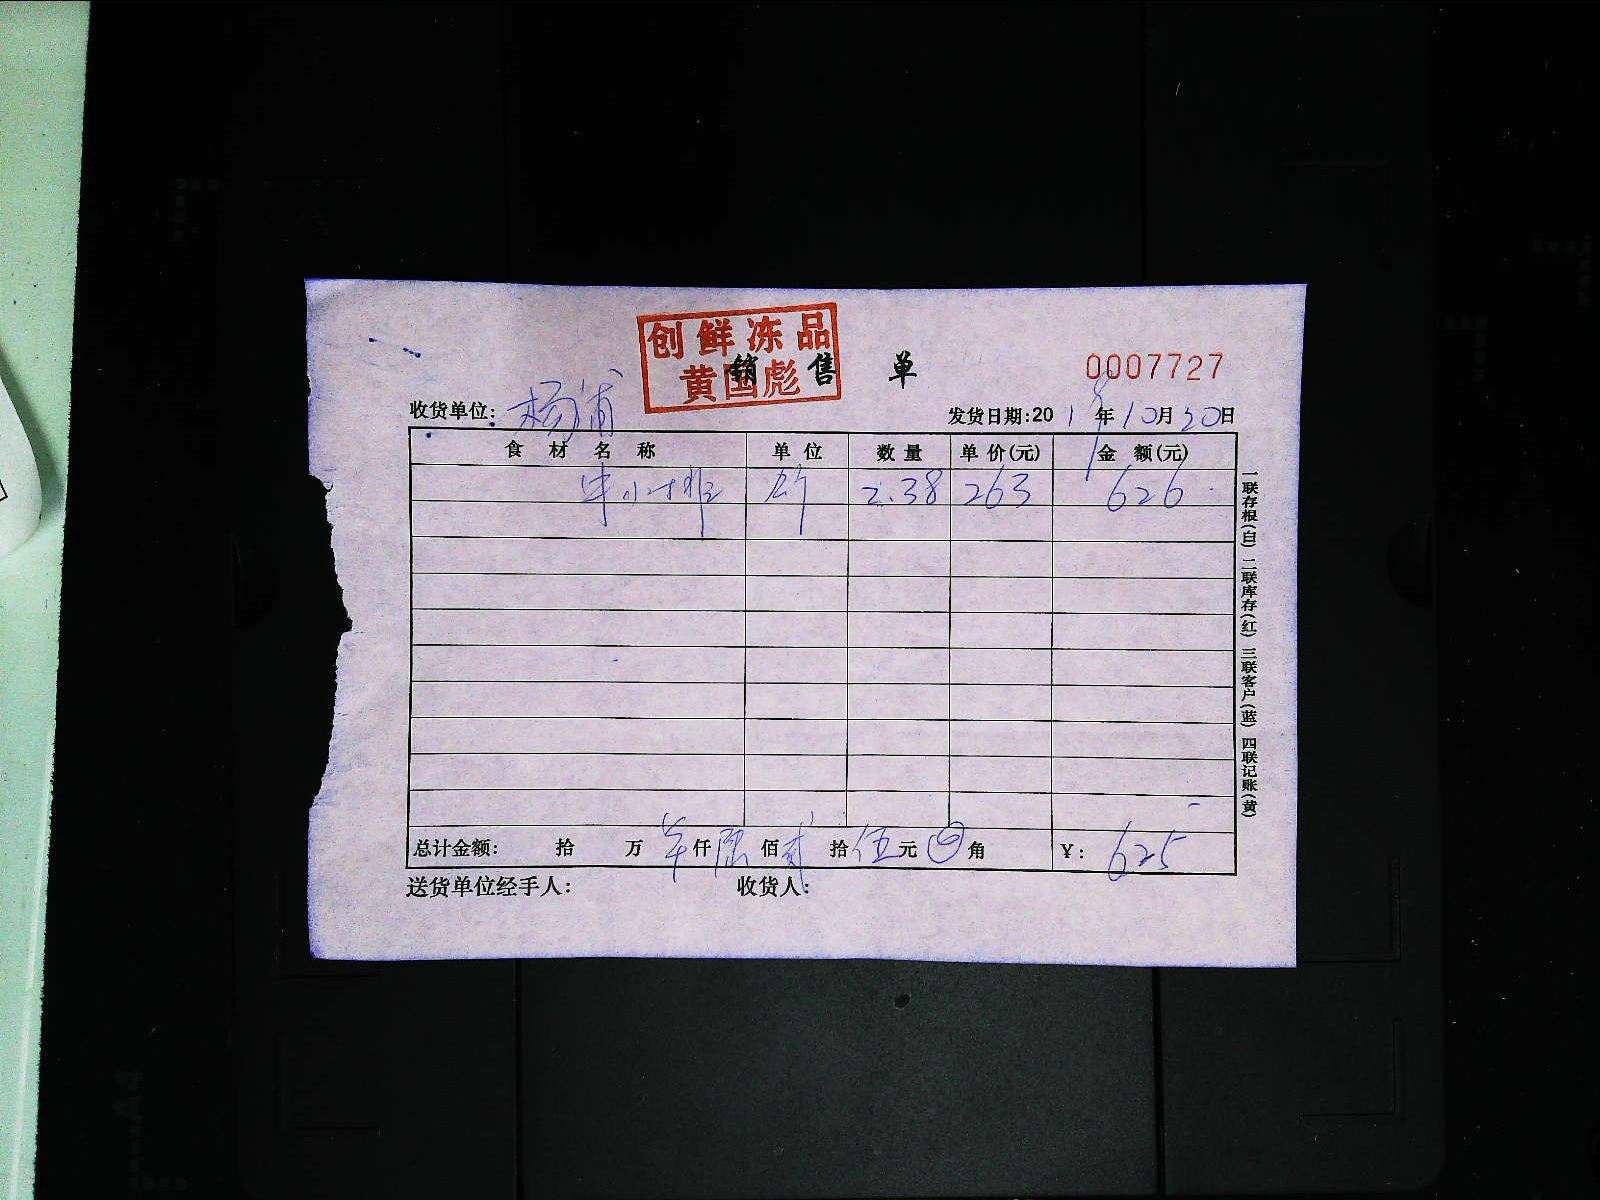 创鲜冻品
黄国彪
销售单
0007727
收货单位: 杨浦
发货日期:201 年10月20日
食材名称 单位 数量 单价(元) 金额(元)
牛小排 斤 2.38 263 626
总计金额: 拾 万 仟 陆佰 贰拾 伍元 角 ¥: 625
送货单位经手人: 收货人:
一联存根(白) 二联库存(红) 三联客户(蓝) 四联记账(黄)